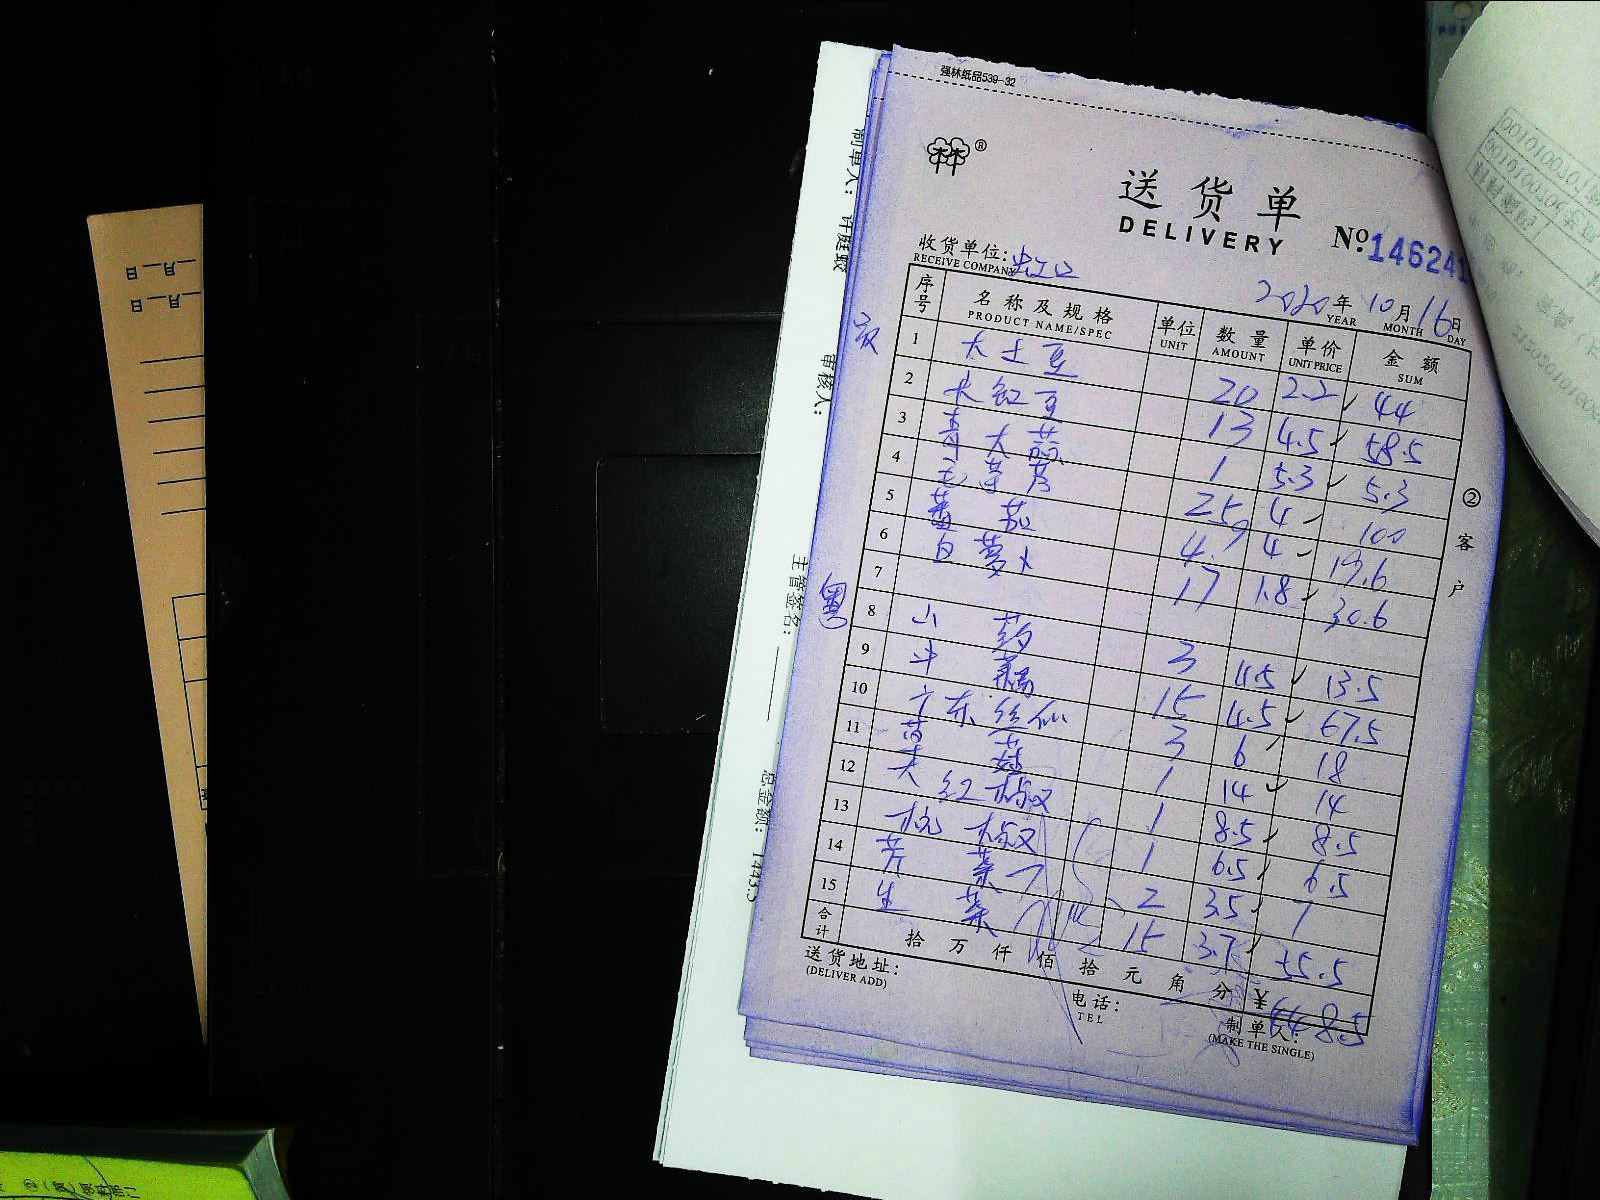 强林纸品539-32
®
送货单
DELIVERY
No 146241
收货单位: 虹口
RECEIVE COMPANY
2020年 10月 16日
YEAR MONTH DAY
序号 名称及规格 单位 数量 单价 金额
PRODUCT NAME/SPEC UNIT AMOUNT UNIT PRICE SUM
1 大土豆 20 2.2 44
2 大红豆 13 4.5 58.5
3 青大蒜 1 5.3 5.3
4 毛芋艿 25 4 100
5 蕃茄 4.9 4 19.6
6 白萝卜 17 1.8 30.6
7
粤
8 山药 3 4.5 13.5
9 15 4.5 67.5
10 广东丝瓜 3 6 18
11 1 14 14
12 大红椒 1 8.5 8.5
13 杭椒 1 6.5 6.5
14 芹菜 2 3.5 7
15 生菜 15 3.7 55.5
合计 拾万仟佰拾元角分 ¥448.5
送货地址:
(DELIVER ADD)
电话:
TEL
制单人:
(MAKE THE SINGLE)
②客户
制单人: 许庭蛟
审核人:
主管签名:
总金额: 1443.5
日 月
日 月